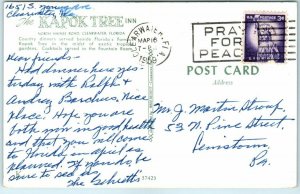 1651 S.
Clearwater, Fla.
The KAPOK TREE INN
NORTH HAINES ROAD, CLEARWATER, FLORIDA
Country dinners served beside Florida's famous
Kapok Tree in the midst of exotic tropical
gardens. Cocktails served in
Dear friends -
Had dinner here yes-
terday with Ralph &
Audrey Barchus. Nice
place. Hope you are
both now in good health
and that you will come
to Florida in April as
planned. If you do, be
sure to see us
The Schretts
37425
CLEARWATER, FLA.
MAR 16
1959
PRAY
FOR
PEACE
3¢
POST CARD
Address
Mr. J. Martin Stroup,
53 N. Pine Street,
Lewistown,
Pa.